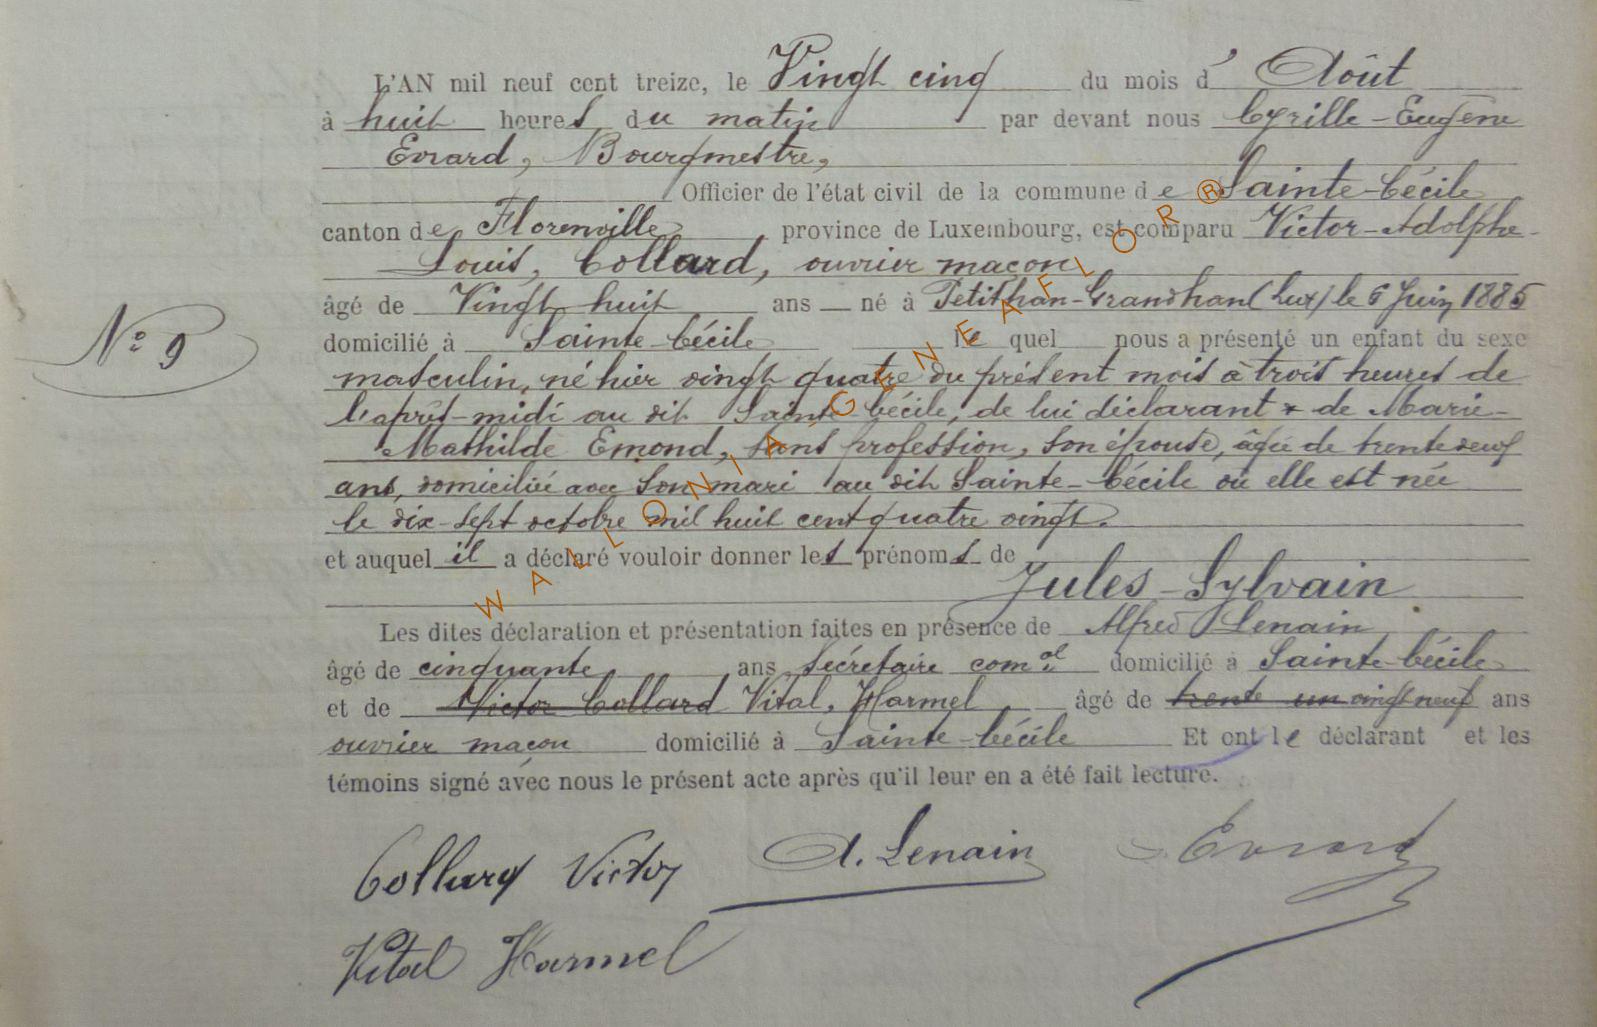 L'AN mil neuf cent treize, le Vingt cinq du mois d' Août
à huit heures du matin par devant nous Cyrille-Eugène
Evrard, Bourgmestre,
Officier de l'état civil de la commune de Sainte-Cécile
canton de Florenville province de Luxembourg, est comparu Victor-Adolphe-
Louis, Collard, ouvrier maçon
âgé de Vingt huit ans — né à Petithan-Grandhan (Lux) le 6 Juin 1885
N° 9
domicilié à Sainte-Cécile le quel nous a présenté un enfant du sexe
masculin, né hier vingt quatre du présent mois à trois heures de
l'après-midi au dit Sainte-Cécile, de lui déclarant & de Marie-
Mathilde Emond, sans profession, son épouse, âgée de trente deux
ans, domiciliée avec son mari au dit Sainte-Cécile où elle est née
le dix-sept octobre mil huit cent quatre vingt.
et auquel il a déclaré vouloir donner les prénoms de
Jules-Sylvain
Les dites déclaration et présentation faites en présence de Alfred Lenain
âgé de cinquante ans Secrétaire com.al domicilié à Sainte-Cécile
et de Victor Collard Vital, Harmel âgé de trente un vingt neuf ans
ouvrier maçon domicilié à Sainte-Cécile Et ont le déclarant et les
témoins signé avec nous le présent acte après qu'il leur en a été fait lecture.
Collard Victor A. Lenain C. Evrard
Vital Harmel
WALLONIA-GENEAFLOR®